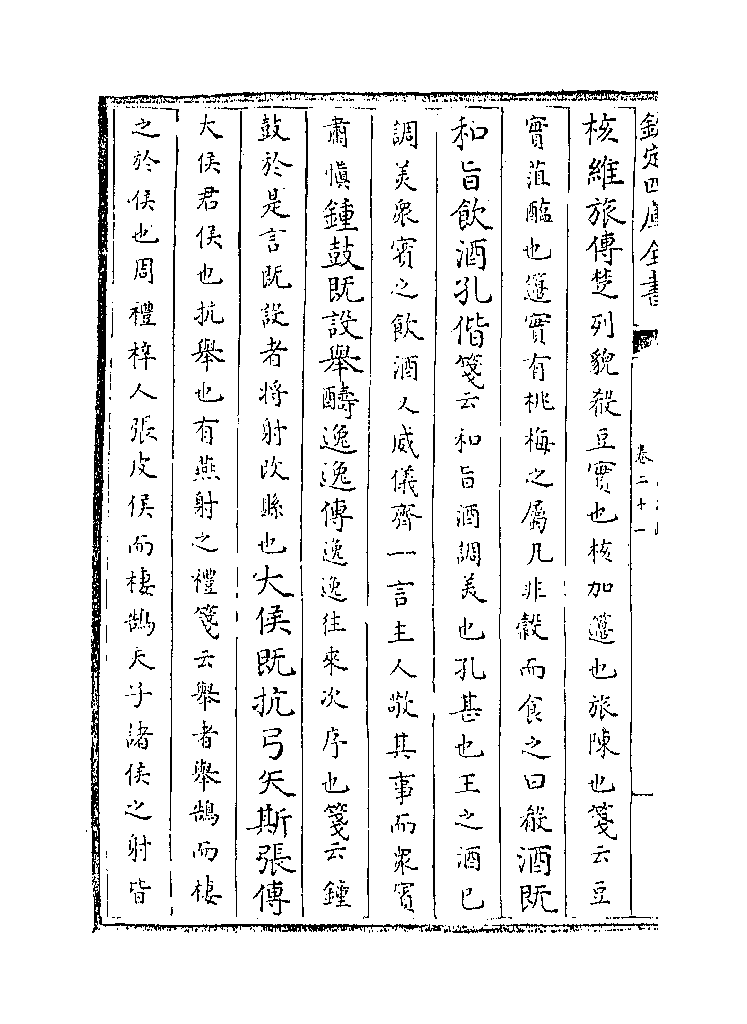 欽定四庫全書
卷二十一
核維旅傳楚列貌殽豆實也核加籩也旅陳也箋云豆
實菹醢也籩實有桃梅之屬凡非穀而食之曰殽酒既
和旨飲酒孔偕箋云和旨酒調美也孔甚也王之酒已
調美衆賓之飲酒又威儀齊一言主人敬其事而衆賓
肅慎鍾鼓既設舉醻逸逸傳逸逸往來次序也箋云鍾
鼓於是言既設者將射改縣也大侯既抗弓矢斯張傳
大侯君侯也抗舉也有燕射之禮箋云舉者舉鵠而棲
之於侯也周禮梓人張皮侯而棲鵠天子諸侯之射皆